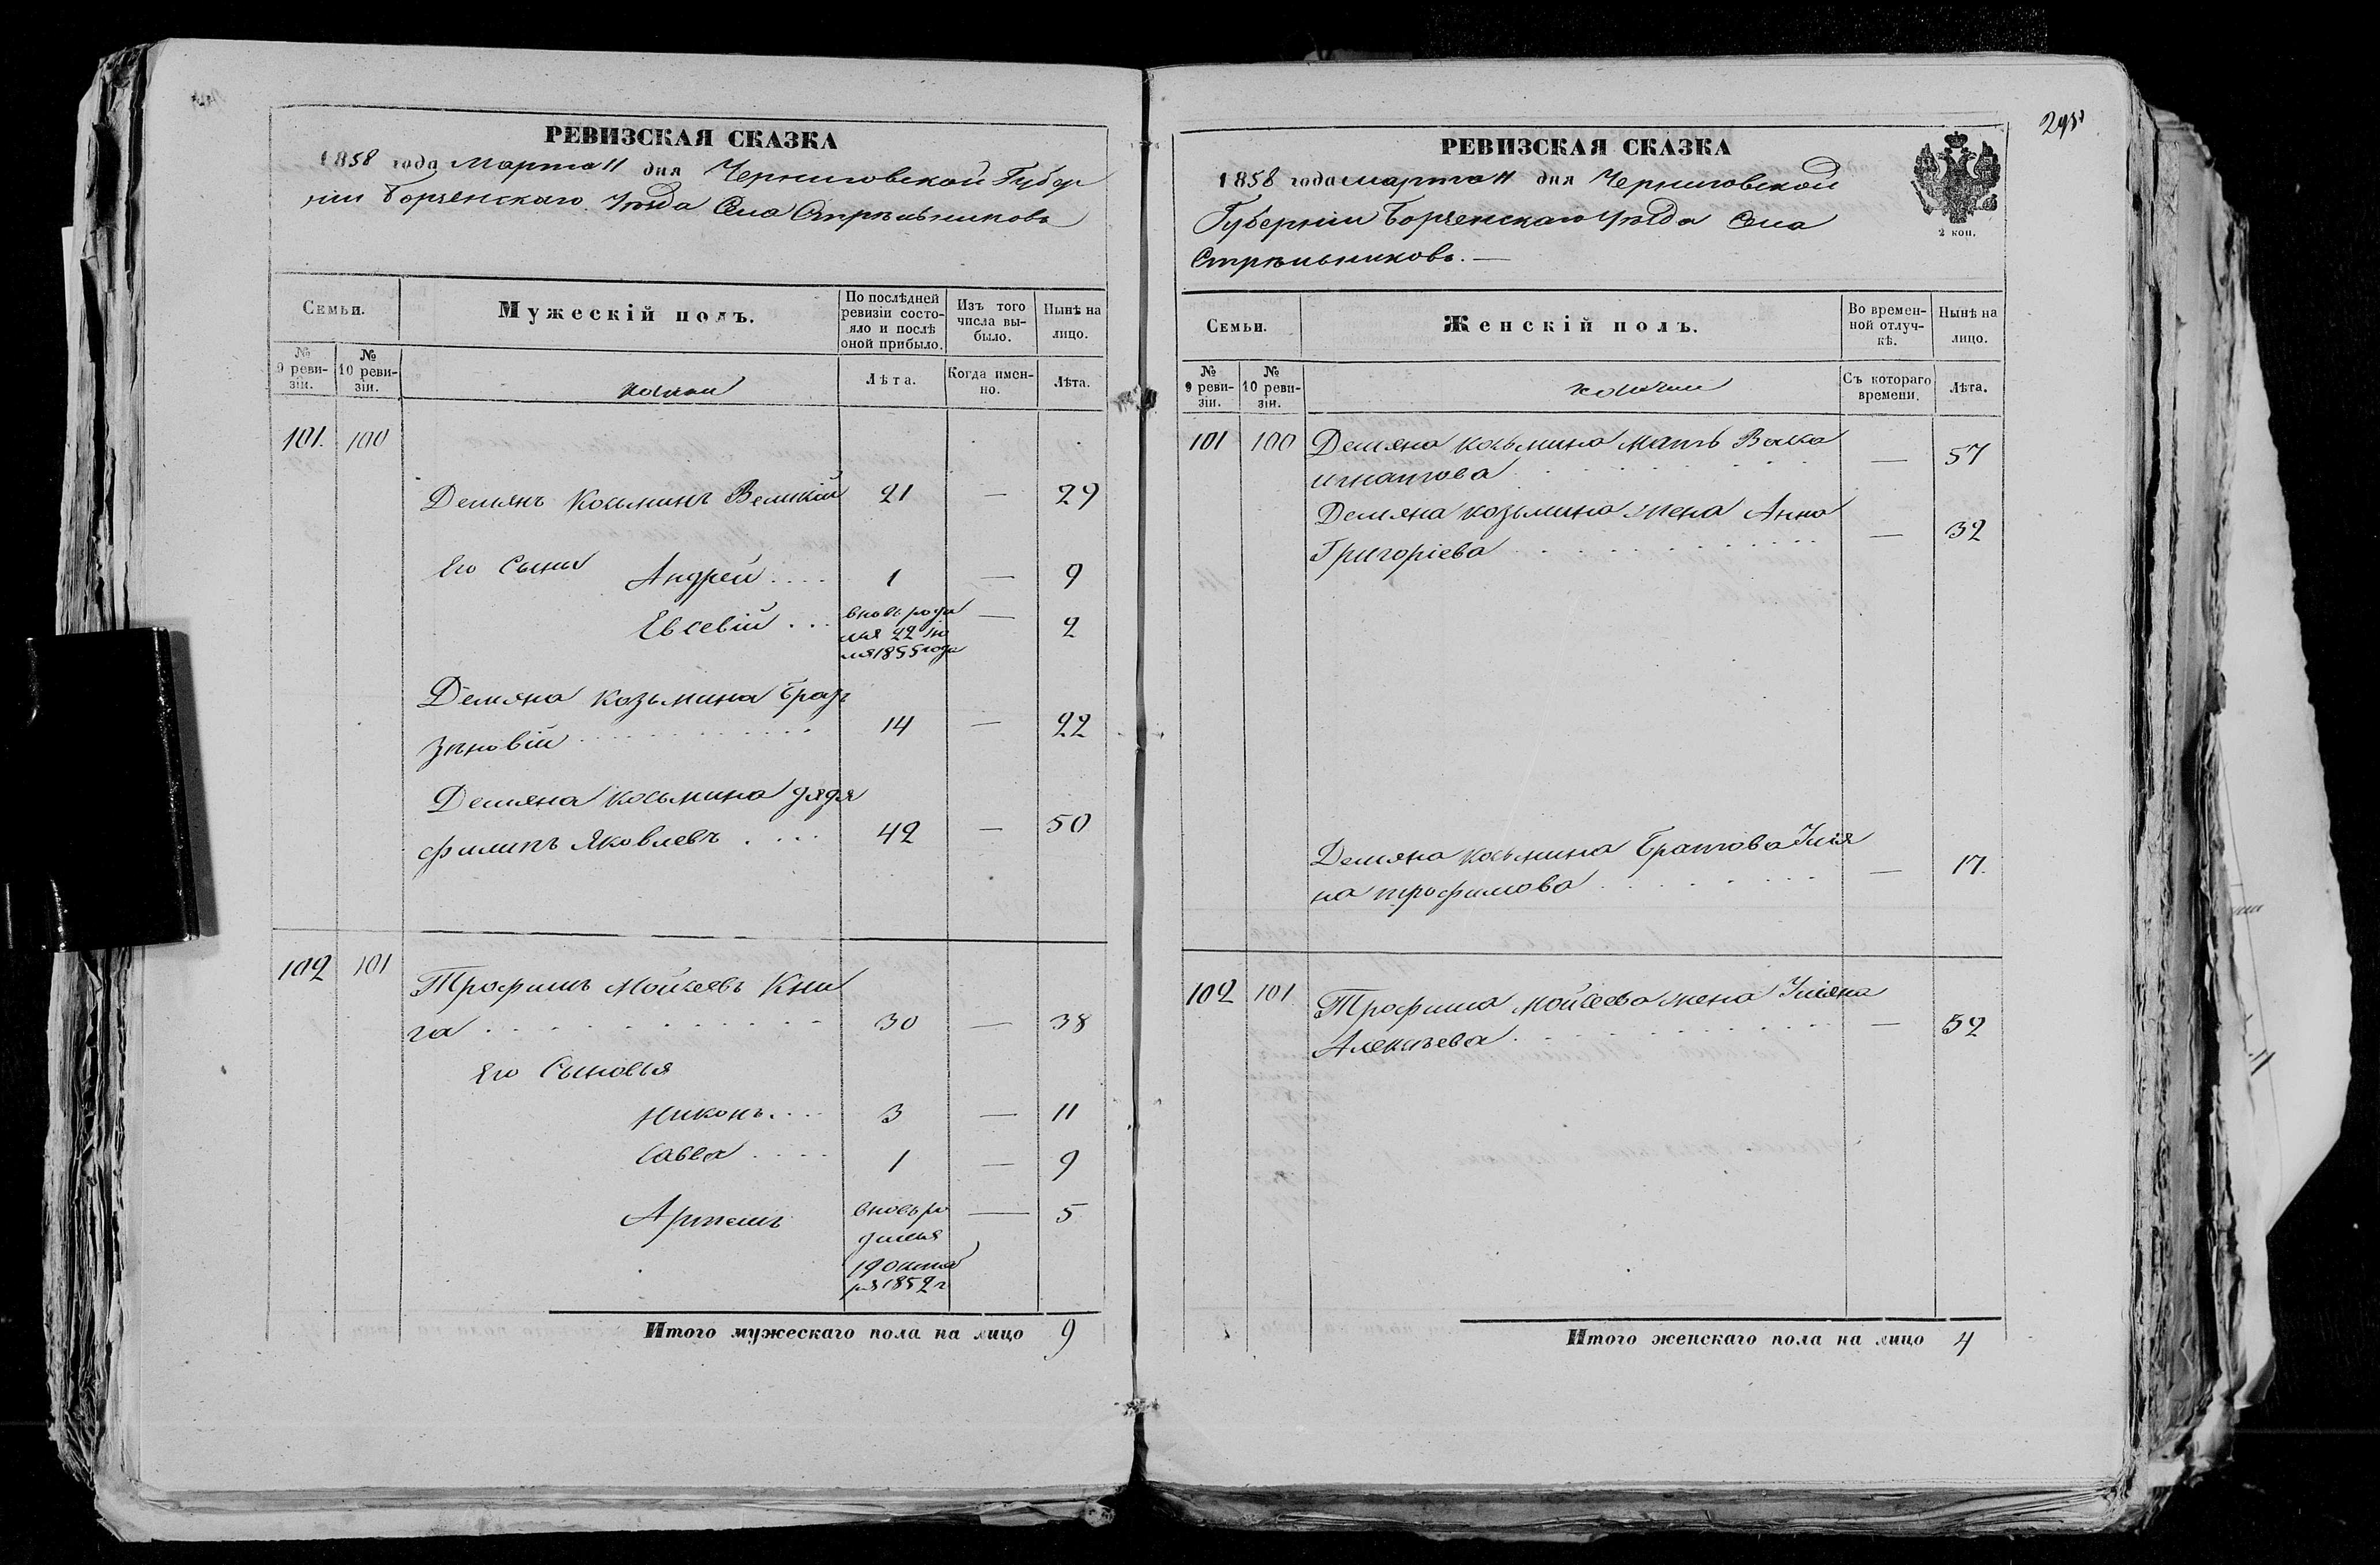 РЕВИЗСКАЯ СКАЗКА
1858 года Марта 11 дня Черниговской Губер
ніи Борзенскаго Уѣзда Села Стрѣльниковъ
Семьи.
Мужескій полъ.
По послѣдней ревизіи состо-
яло и послѣ оной прибыло.
Изъ того числа вы-
было.
Нынѣ на лицо.
№ 9 реви-
зіи.
№ 10 реви-
зіи.
Лѣта.
Когда имен-
но.
Лѣта.
101. 100
Демянъ Косьминъ Великій 21 — 29
Его Сыны Андрей .... 1 — 9
Евсевій ... вновь роди — 2
лся 22 ію
ля 1855 года
Демяна Козьмина Братъ
Зѣновій 14 — 22
Демяна Косьмина дядя
Филипъ Яковлевъ .... 42 — 50
102 101
Трофимъ Мойсеевъ Кни
га 30 — 38
Его Сыновья
Никонъ.... 3 — 11
Савва .... 1 — 9
Артемъ вновь ро — 5
дился
19 октяб
ря 1852 г
Итого мужескаго пола на лицо 9
РЕВИЗСКАЯ СКАЗКА
1858 года марта 11 дня Черниговской
Губерніи Борзенскаго Уѣзда Села
Стрѣльниковъ. —
2 коп.
Семьи.
Женскій полъ.
Во времен-
ной отлуч-
кѣ.
Нынѣ на лицо.
№ 9 реви-
зіи.
№ 10 реви-
зіи.
Съ котораго времени.
Лѣта.
101 100 Демяна Косьмина мать
Игнатова — 57
Демяна Козьмина жена Анна
Григоріева — 32
Демяна Косьмина Братова Улія
на Трофимова — 17.
102 101. Трофима Мойсеева жена Уліяна
Алексѣева — 32
Итого женскаго пола на лицо 4